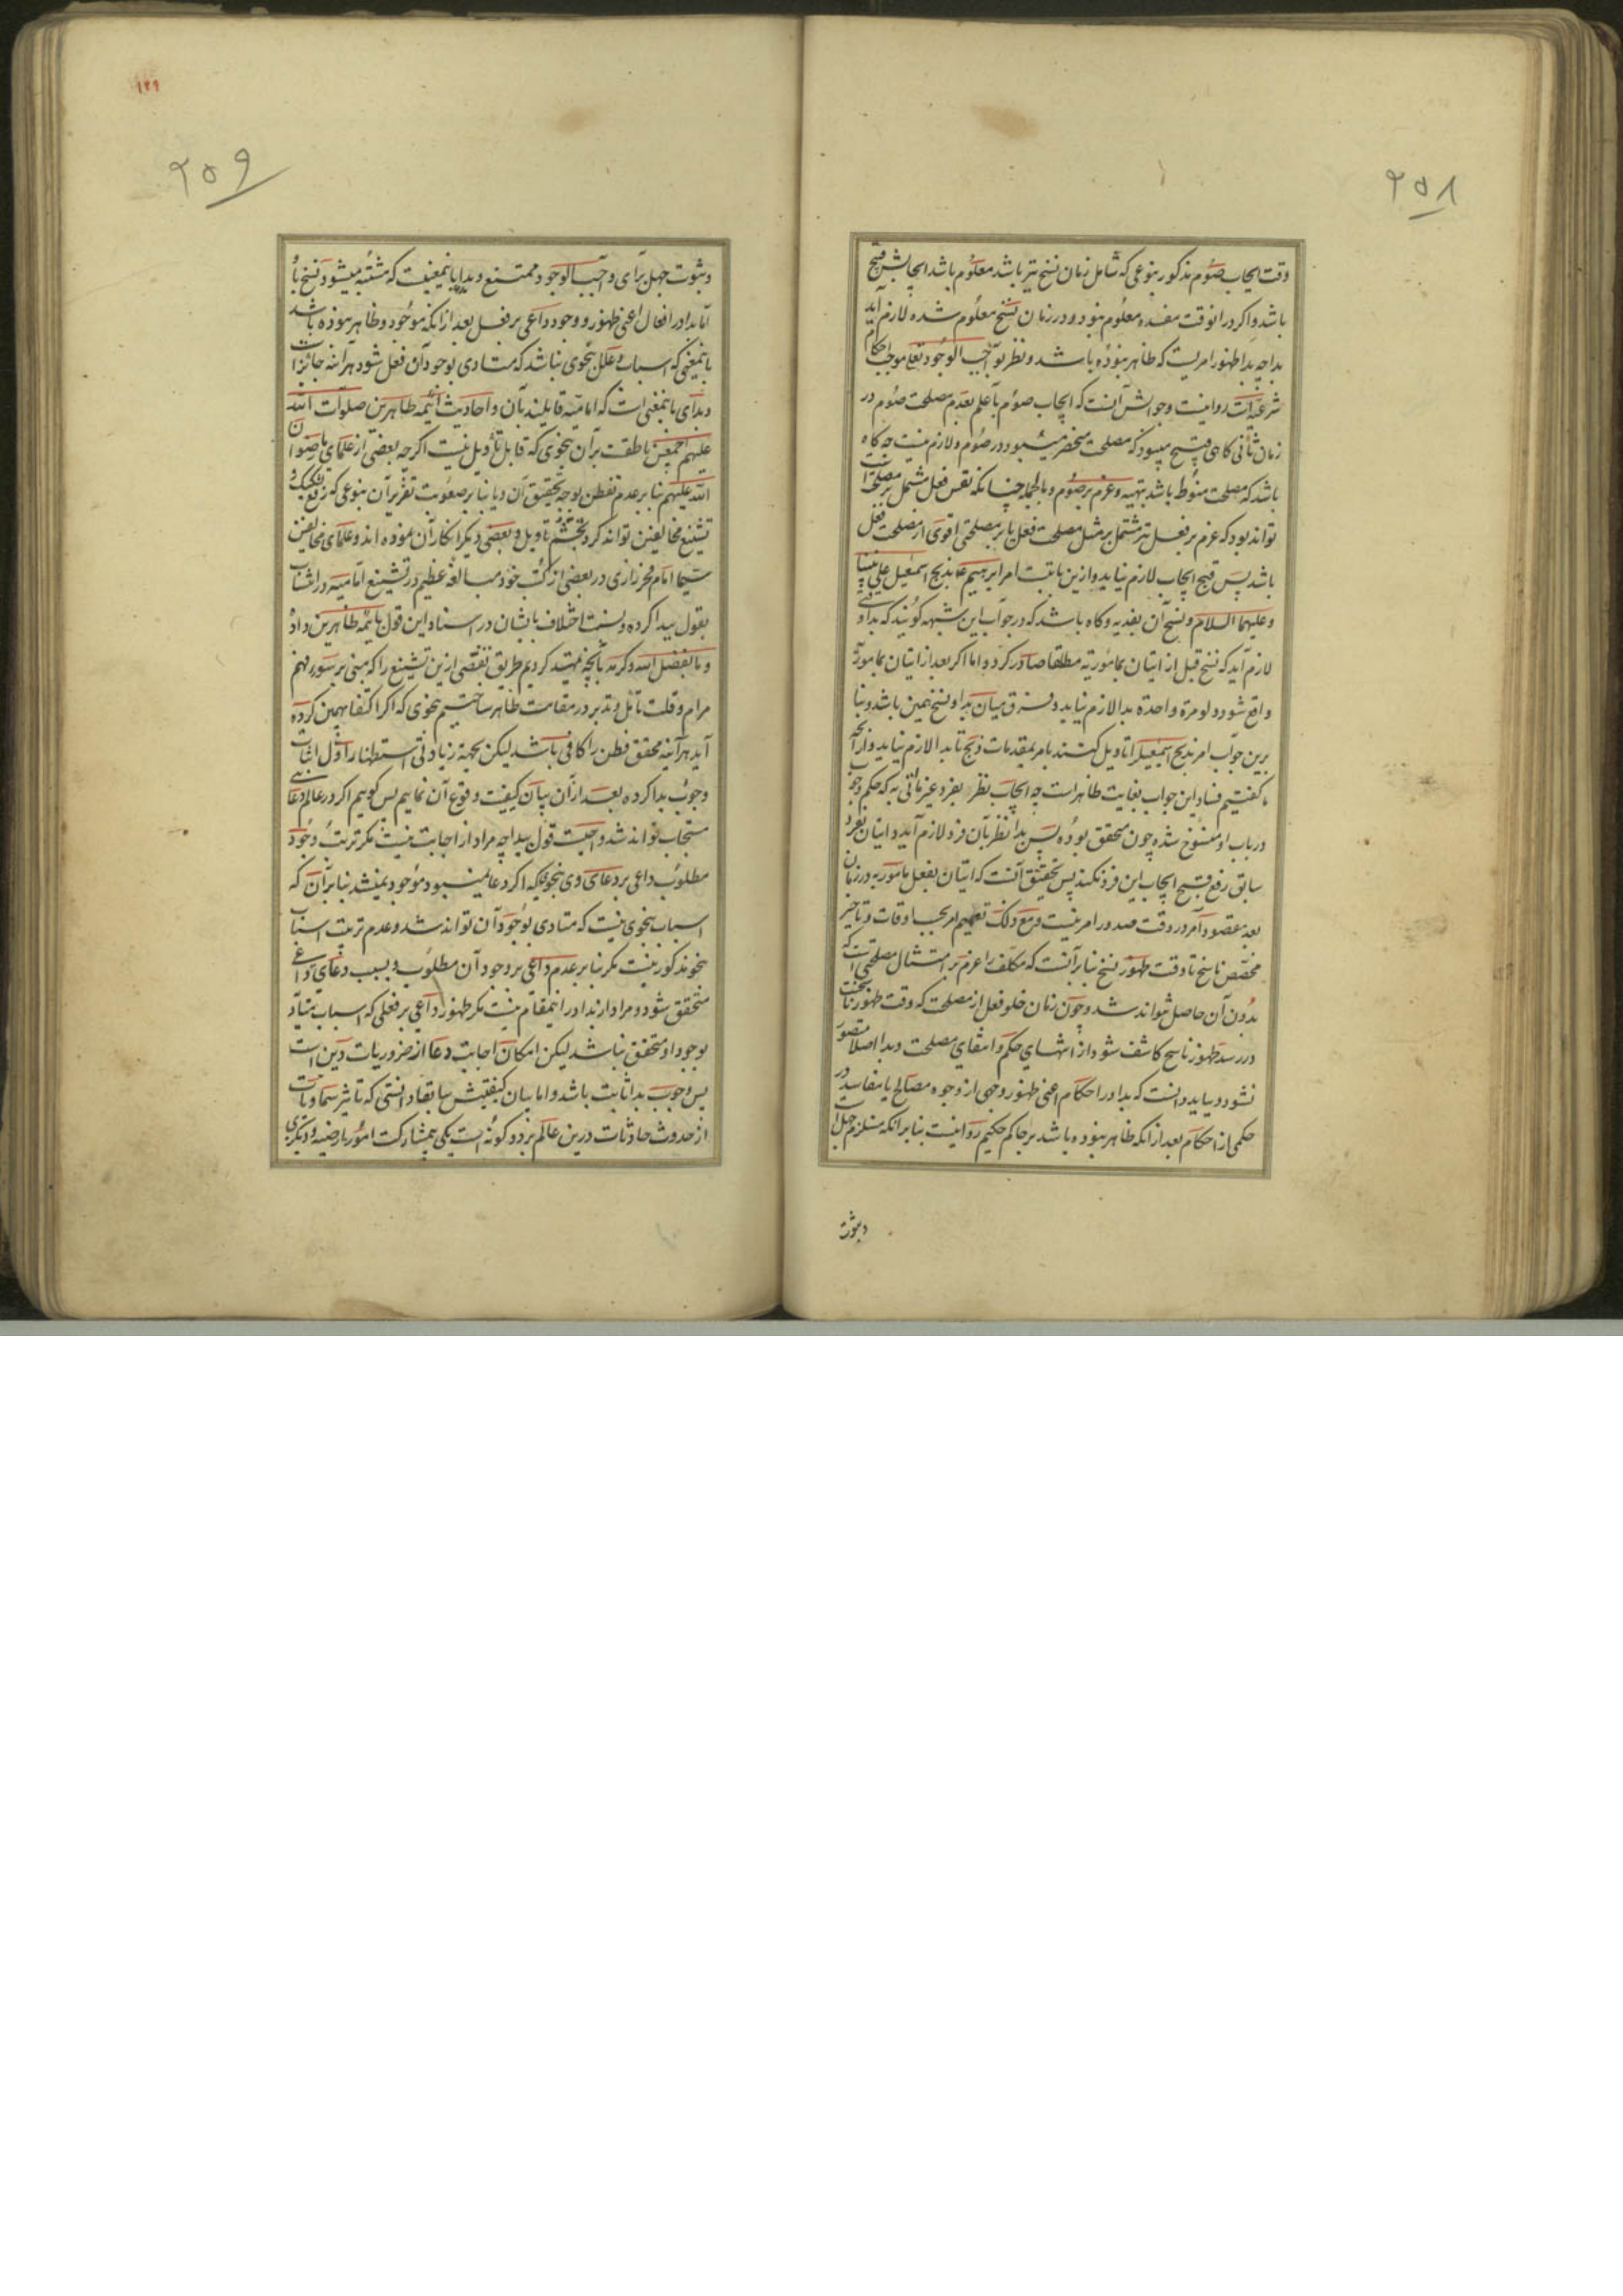 ۲۵۸
وقت ایجاب صوم مذکور بنوعی که شامل زمان نسخ نیز باشد معلوم باشد ایجابش قبیح
باشد و اکر در انوقت مفسده معلوم نبود و در زمان نسخ معلوم شده لازم آید
بدا چه بدا ظهور امریست که ظاهر نبوده باشد و نظر بواجب الوجود تعالی موجب احکام
شرعیه است روا نیست و جوابش آنست که ایجاب صوم با علم بعدم مصلحت صوم در
زمان ثانی کاهی قبیح میبود که مصلحت منحصر میبود در صوم و لازم نیست چه کاه
باشد که مصلحت منوط باشد بتهیه و عزم بر صوم و بالجمله چنانکه نفس فعل مشتمل بر مصلحت است
تواند بود که عزم بر فعل نیز مشتمل بر مثل مصلحت فعل یا بر مصلحتی اقوی از مصلحت فعل
باشد پس قبح ایجاب لازم نیاید و ازین بابتست امر ابرهیم ع بذبح اسمعیل علی نبینا
و علیهما السلام و نسخ آن بفدیه و کاه باشد که در جواب این شبهه کویند که بدا وقتی
لازم آید که نسخ قبل از اتیان بمامور به مطلقا صادر کردد و اما اکر بعد از اتیان بمامور به
واقع شود و لو مرة واحدة بدا لازم نیاید و فرق میان بدا و نسخ همین باشد و بنا
برین جواب امر بذبح اسمعیل را تاویل کنند بامر بمقدمات ذبح تا بدا لازم نیاید و از آنچه
ما کفتیم فساد این جواب بغایت ظاهر است چه ایجاب نظر بفرد غیر ماتی به که حکم وجوب
در باب او منسوخ شده چون متحقق بوده پس بدا نظر بآن فرد لازم آید و اتیان بفرد
سابق رفع قبح ایجاب این فرد نکند پس تحقیق آنست که اتیان بفعل مامور به در زمان
بعد مقصود آمر در وقت صدور امر نیست و مع ذلک تعمیم امر بحسب اوقات و تاخیر
مخصص ناسخ تا وقت ظهور نسخ بنا بر آنست که مکلف را عزم بر امتثال مصلحتی است که
بدون آن حاصل نتواند شد و چون زمان خلو فعل از مصلحت که وقت ظهور ناسخست
در رسد ظهور ناسخ کاشف شود از انتهای حکم و انتفای مصلحت و بدا اصلا متصور
نشود و بباید دانست که بدا در احکام اعنی ظهور وجهی از وجوه مصالح یا مفاسد در
حکمی از احکام بعد از انکه ظاهر نبوده باشد بر حاکم حکیم روا نیست بنا بر انکه مستلزم جهل است
و ثبوت
۱۲۹
۲۵۹
و ثبوت جهل برای واجب الوجود ممتنع و بدا باینمعنیست که مشتبه میشود نسخ با او
اما بدا در افعال اعنی ظهور و وجود داعی بر فعل بعد از انکه موجود و ظاهر نبوده باشد
باینمعنی که اسباب و علل بنحوی نباشد که متادی بوجود آن فعل شود هر آینه جائز است
و بدای باینمعنی است که امامیه قایلند بآن و احادیث ائمه طاهرین صلوات الله
علیهم اجمعین ناطقست بر آن بنحوی که قابل تأویل نیست اکرچه بعضی از علمای ما رضوان
الله علیهم بنا بر عدم تفطن بوجه تحقیق آن و یا بنا بر صعوبت تقریر آن بنوعی که رفع تشکیک و
تشنیع مخالفین تواند کرد تجشم تاویل و بعضی دیکر انکار آن نموده اند و علمای مخالفین
سیما امام فخر رازی در بعضی از کتب خود مبالغه عظیم در تشنیع امامیه در انتساب
بقول ببدا کرده و نسبت اختلاف بایشان در اسناد این قول بائمه طاهرین داده
و ما بفضل الله و کرمه بآنچه تمهید کردیم طریق تفصی ازین تشنیع را که مبنی بر سوء فهم
مرام و قلت تأمل و تدبر در مقامست ظاهر ساختیم بنحوی که اکر اکتفا بهمین کرده
آید هر آینه محقق فطن را کافی باشد لیکن بجهة زیادتی استظهار اول اثبات
وجوب بدا کرده بعد از آن بیان کیفیت وقوع آن نماییم پس کوییم اکر در عالم دعائی
مستجاب تواند شد واجبست قول ببدا چه مراد از اجابت نیست مکر ترتب وجود
مطلوب داعی بر دعای وی بنحویکه اکر دعا نمیبود موجود نمیشد بنا بر آن که
اسباب بنحوی نیست که متادی بوجود آن تواند شد و عدم ترتب اسباب
بنحو مذکور نیست مکر بنا بر عدم داعی بر وجود آن مطلوب و بسبب دعای داعی
متحقق شود و مراد از بدا در اینمقام نیست مکر ظهور داعی بر فعلی که اسباب متادی
بوجود او متحقق نباشد لیکن امکان اجابت دعا از ضروریات دین است
پس وجوب بدا ثابت باشد و اما بیان کیفیتش سابقا دانستی که تاثیر سماویات
از حدوث حادثات درین عالم بر دو کونه است یکی بمشارکت امور ارضیه و دیکری